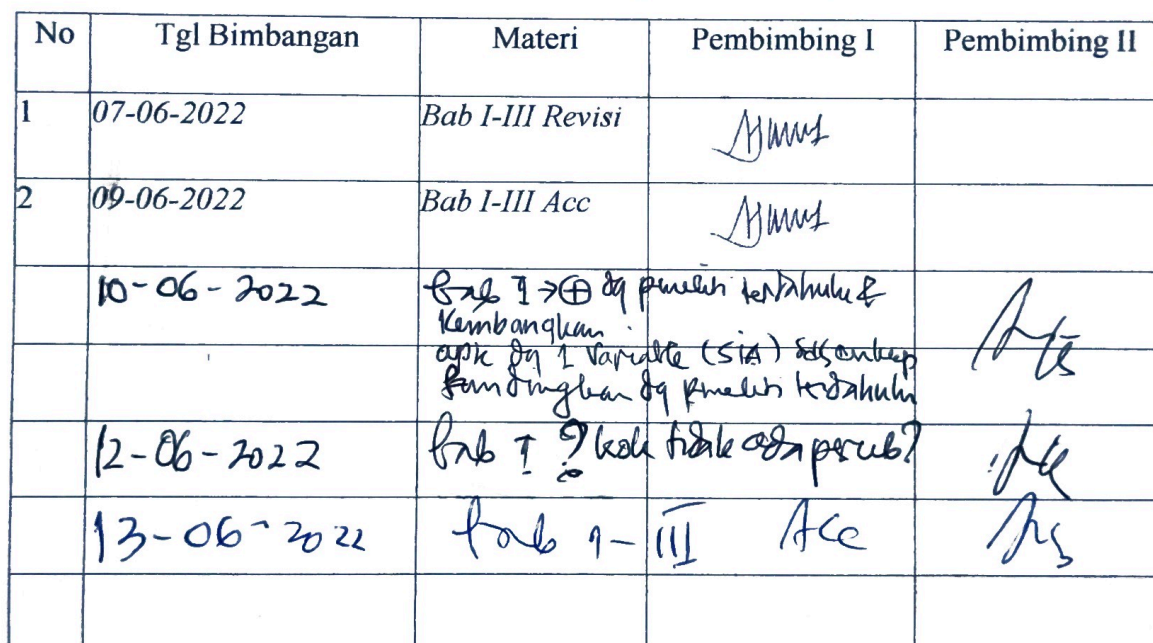 No Tgl Bimbangan Materi Pembimbing I Pembimbing II
1 07-06-2022 Bab I-III Revisi
2 09-06-2022 Bab I-III Acc
10-06-2022 Bab I → ⊕ dg peneliti terdahulu &
Kembangkan
apk dg 1 Variable (SIA)
bandingkan dg peneliti terdahulu
12-06-2022 Bab I ? kok tidak ada perub?
13-06-2022 Bab 1-III Acc